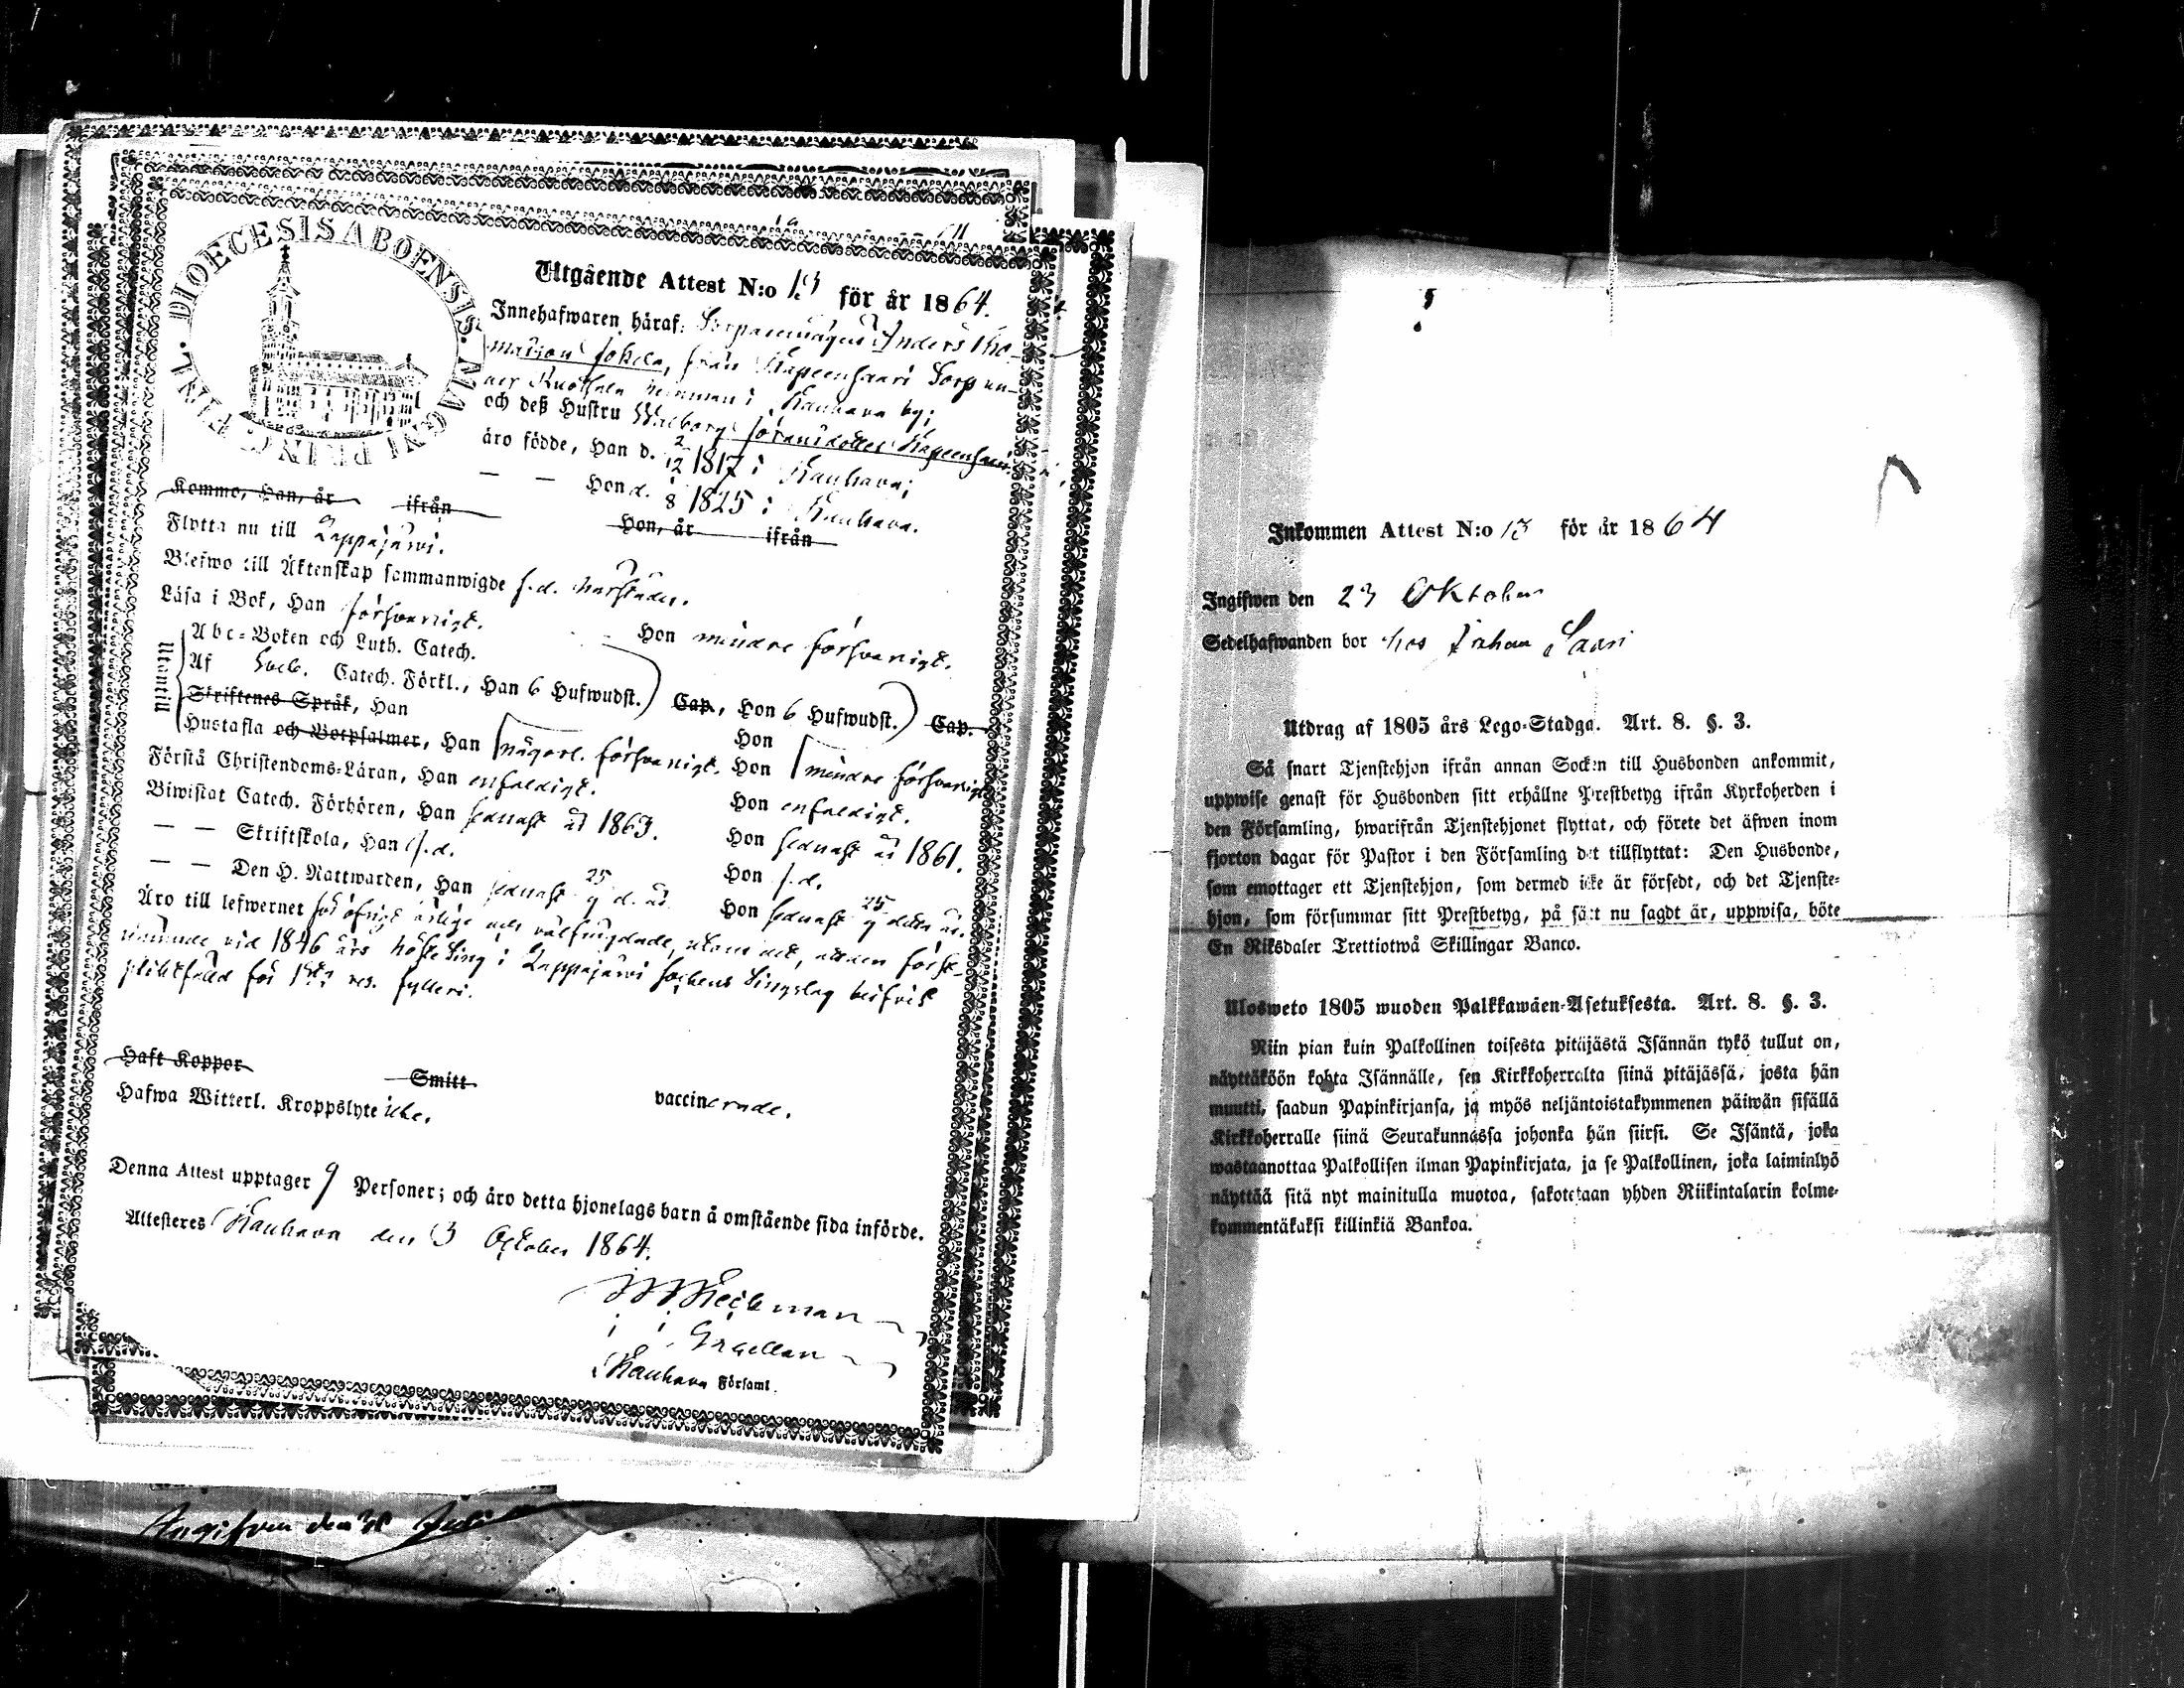 DIOECESIS ABOENSIS. MAGNI PRINC: FINL.
Utgående Attest N:o 13 för år 1864.
Innehafwaren häraf: Torparemågen Anders Tho-
masson Jokela, från Kapeenhaari Torp un-
der Ruotsala hemman i Kauhava by;
och deß Hustru Walborg Jöransdotter Kapeenhaari
äro födde, Han d. 2/12 1817 i Kauhava;
— — Hon d. 1/8 1825 i Kauhava.
Kommo, Han, år ifrån Hon, år ifrån
Flytta nu till Lappajärwi.
Blefwo till Äktenskap sammanwigde s.d.
Läsa i Bok, Han försvarligt. Hon mindre försvarligt.
Utantill
Abc-Boken och Luth. Catech.
Af Sveb. Catech. Förkl., Han 6 Hufwudst. Cap., Hon 6 Hufwudst. Cap.
Skriftenes Språk, Han Hon
Hustafla och Botpsalmer, Han någorl. försvarligt. Hon mindre försvarligt
Förstå Christendoms-Läran, Han enfaldigt. Hon enfaldigt.
Biwistat Catech. Förhören, Han sednast år 1863. Hon sednast år 1861.
— — Skriftskola, Han s.d. Hon s.d.
— — Den H. Nattwarden, Han sednast 25/9 d. år Hon sednast 25/9 detta år.
Äro till lefwernet för öfrigt ärlige och välfrejdade, utom att mannen först-
nämnde vid 1846 års höste Ting i Lappajärwi Sockens Tingslag blifvit
pliktfälld för 1sta res. fylleri.
Haft Koppor Smitt vaccinerade.
Hafwa Witterl. Kroppslyte icke.
Denna Attest upptager 9 Personer; och äro detta hjonelags barn å omstående sida införde.
Attesteres Kauhava den 3 October 1864.
Kauhava Församl.
Ingifven den 30 Juli
Inkommen Attest N:o 13 för år 1864
Ingifwen den 23 Oktober
Sedelhafwanden bor hos Johan Saari
Utdrag af 1805 års Lego-Stadga. Art. 8. §. 3.
Så snart Tjenstehjon ifrån annan Socken till Husbonden ankommit,
uppwise genast för Husbonden sitt erhållne Prestbetyg ifrån Kyrkoherden i
den Församling, hwarifrån Tjenstehjonet flyttat, och förete det äfwen inom
fjorton dagar för Pastor i den Församling det tillflyttat: Den Husbonde,
som emottager ett Tjenstehjon, som dermed icke är försedt, och det Tjenste-
hjon, som försummar sitt Prestbetyg, på sätt nu sagdt är, uppwisa, böte
En Riksdaler Trettiotwå Skillingar Banco.
Ulosweto 1805 wuoden Palkkawäen-Asetuksesta. Art. 8. §. 3.
Niin pian kuin Palkollinen toisesta pitäjästä Isännän tykö tullut on,
näyttäköön kohta Isännälle, sen Kirkkoherralta siinä pitäjässä, josta hän
muutti, saadun Papinkirjansa, ja myös neljäntoistakymmenen päiwän sisällä
Kirkkoherralle siinä Seurakunnassa johonka hän siirsi. Se Isäntä, joka
wastaanottaa Palkollisen ilman Papinkirjata, ja se Palkollinen, joka laiminlyö
näyttää sitä nyt mainitulla muotoa, sakotetaan yhden Riikintalarin kolme-
kymmentäkaksi killinkiä Bankoa.